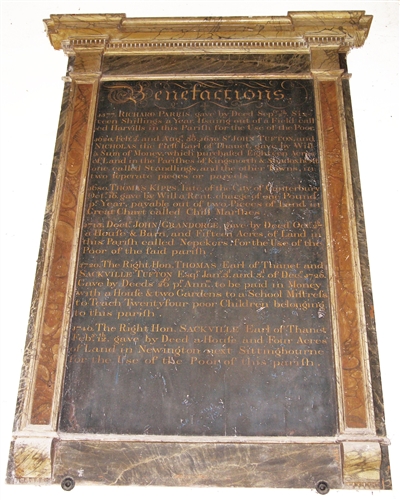 Benefactions
1577. RICHARD PARRIS, gave by Deed Sep.
teen Shillings a Year Issuing out of a Field call
ed Harvills in this Parish for the Use of the Poor
Feb. and Aug. S.r JOHN TUFTON, and
NICHOLAS the First Earl of Thanet, gave by Will
a Sum of Money which purchased Eight
of Land in the Parishes of Kingsnorth &
one called Standlings, and the other
two seperate pieces or parcels
1680. THOMAS KIPPS, late of the City of Canterbury
gave by Will a Rent charge of one Pound
p.r Year, payable out of two Pieces of Land in
Great Chart called Chilt Marshes
1713. Doct.r JOHN GRANDORGE, gave by Deed Oct.
a House & Barn, and Fifteen Acres of Land in
this Parish called Nepekers for the Use of the
Poor of the said parish
1720. The Right Hon. THOMAS Earl of Thanet and
SACKVILLE TUFTON Esq.r Jan. and of Dec. 1726.
Gave by Deeds p.r Ann. to be paid in Money
with a House & two Gardens to a School Mistress
to Teach Twenty four poor Children belonging
to this parish
1740. The Right Hon. SACKVILLE Earl of Thanet
Feb. gave by Deed a House and Four Acres
of Land in Newington next Sittingbourne
for the Use of the Poor of this parish.